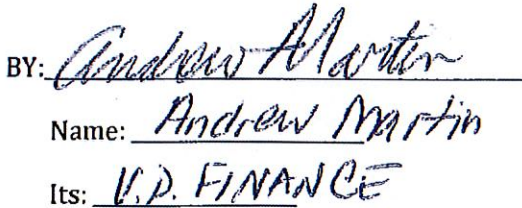 BY: Andrew Martin
Name: Andrew Martin
Its: V.P. FINANCE